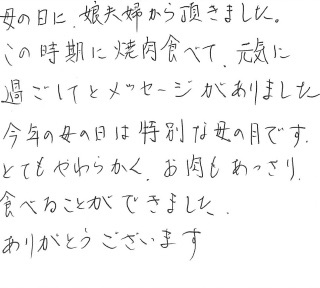 母の日に、娘夫婦から頂きました。
この時期に焼肉食べて、元気に
過ごしてとメッセージがありました
今年の母の日は特別な母の月です。
とてもやわらかく、お肉もあっさり、
食べることができました。
ありがとうございます